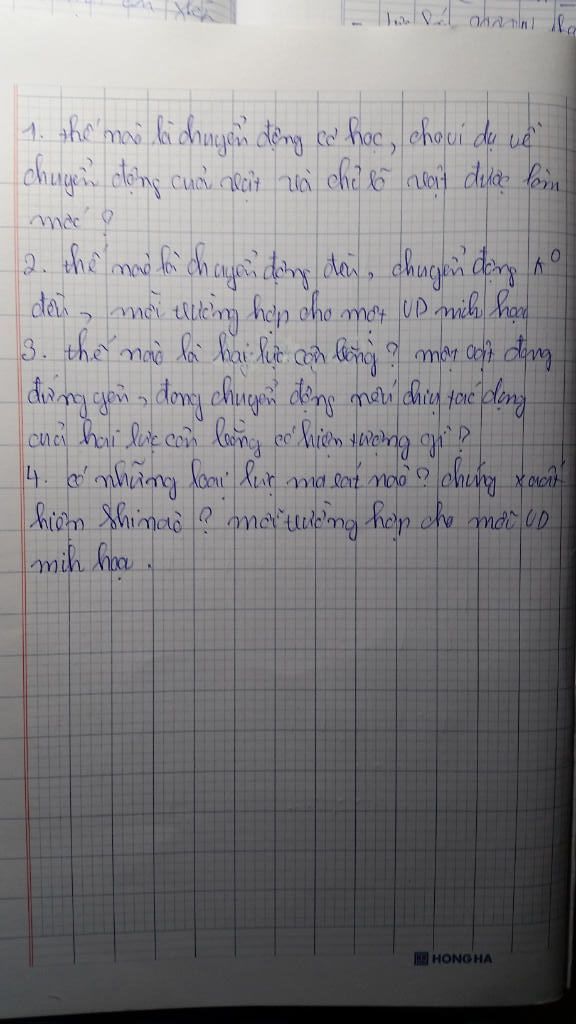 1. thế nào là chuyển động cơ học, cho ví dụ về
chuyển động cuả vật và chỉ rõ vật được làm
mốc ?
2. thế nào là chuyển động đều, chuyển động k⁰
đều, mỗi trường hợp cho một VD mih họa
3. thế nào là hai lực cân bằng ? một vật đang
đứng yên, đang chuyển động nếú chịu tác dụng
cuả hai lực cân bằng có hiện tượng gì ?
4. có những loại lực ma sát nào ? chúng xuất
hiện khi nào ? mỗi trường hợp cho mỗi VD
mih họa .
HONG HA